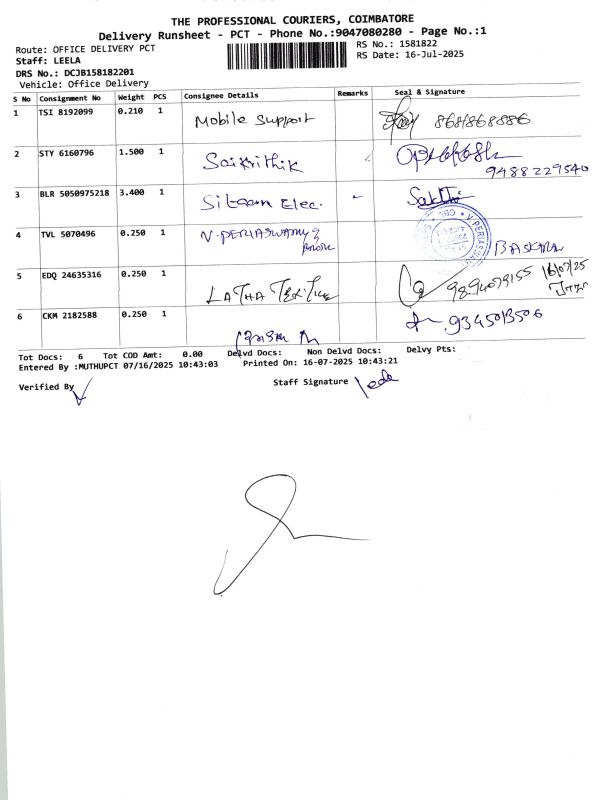 THE PROFESSIONAL COURIERS, COIMBATORE
Delivery Runsheet - PCT - Phone No.:9047080280 - Page No.:1
Route: OFFICE DELIVERY PCT
RS No.: 1581822
Staff: LEELA
RS Date: 16-Jul-2025
DRS No.: DCJB158182201
Vehicle: Office Delivery
S No Consignment No Weight PCS Consignee Details Remarks Seal & Signature
1 TSI 8192099 0.210 1 Mobile Support
2 STY 6160796 1.500 1 Saikrithik 9488229540
3 BLR 5050975218 3.400 1 Sitaan Elec. - Sakthi
4 TVL 5070496 0.250 1 V. PERIASWAMY & BASKARAN
5 EDQ 24635316 0.250 1 LATHA 9894079155 16/07/25
6 CKM 2182588 0.250 1 9345013506
Tot Docs: 6 Tot COD Amt: 0.00 Delvd Docs: Non Delvd Docs: Delvy Pts:
Entered By :MUTHUPCT 07/16/2025 10:43:03 Printed On: 16-07-2025 10:43:21
Verified By
Staff Signature Leela